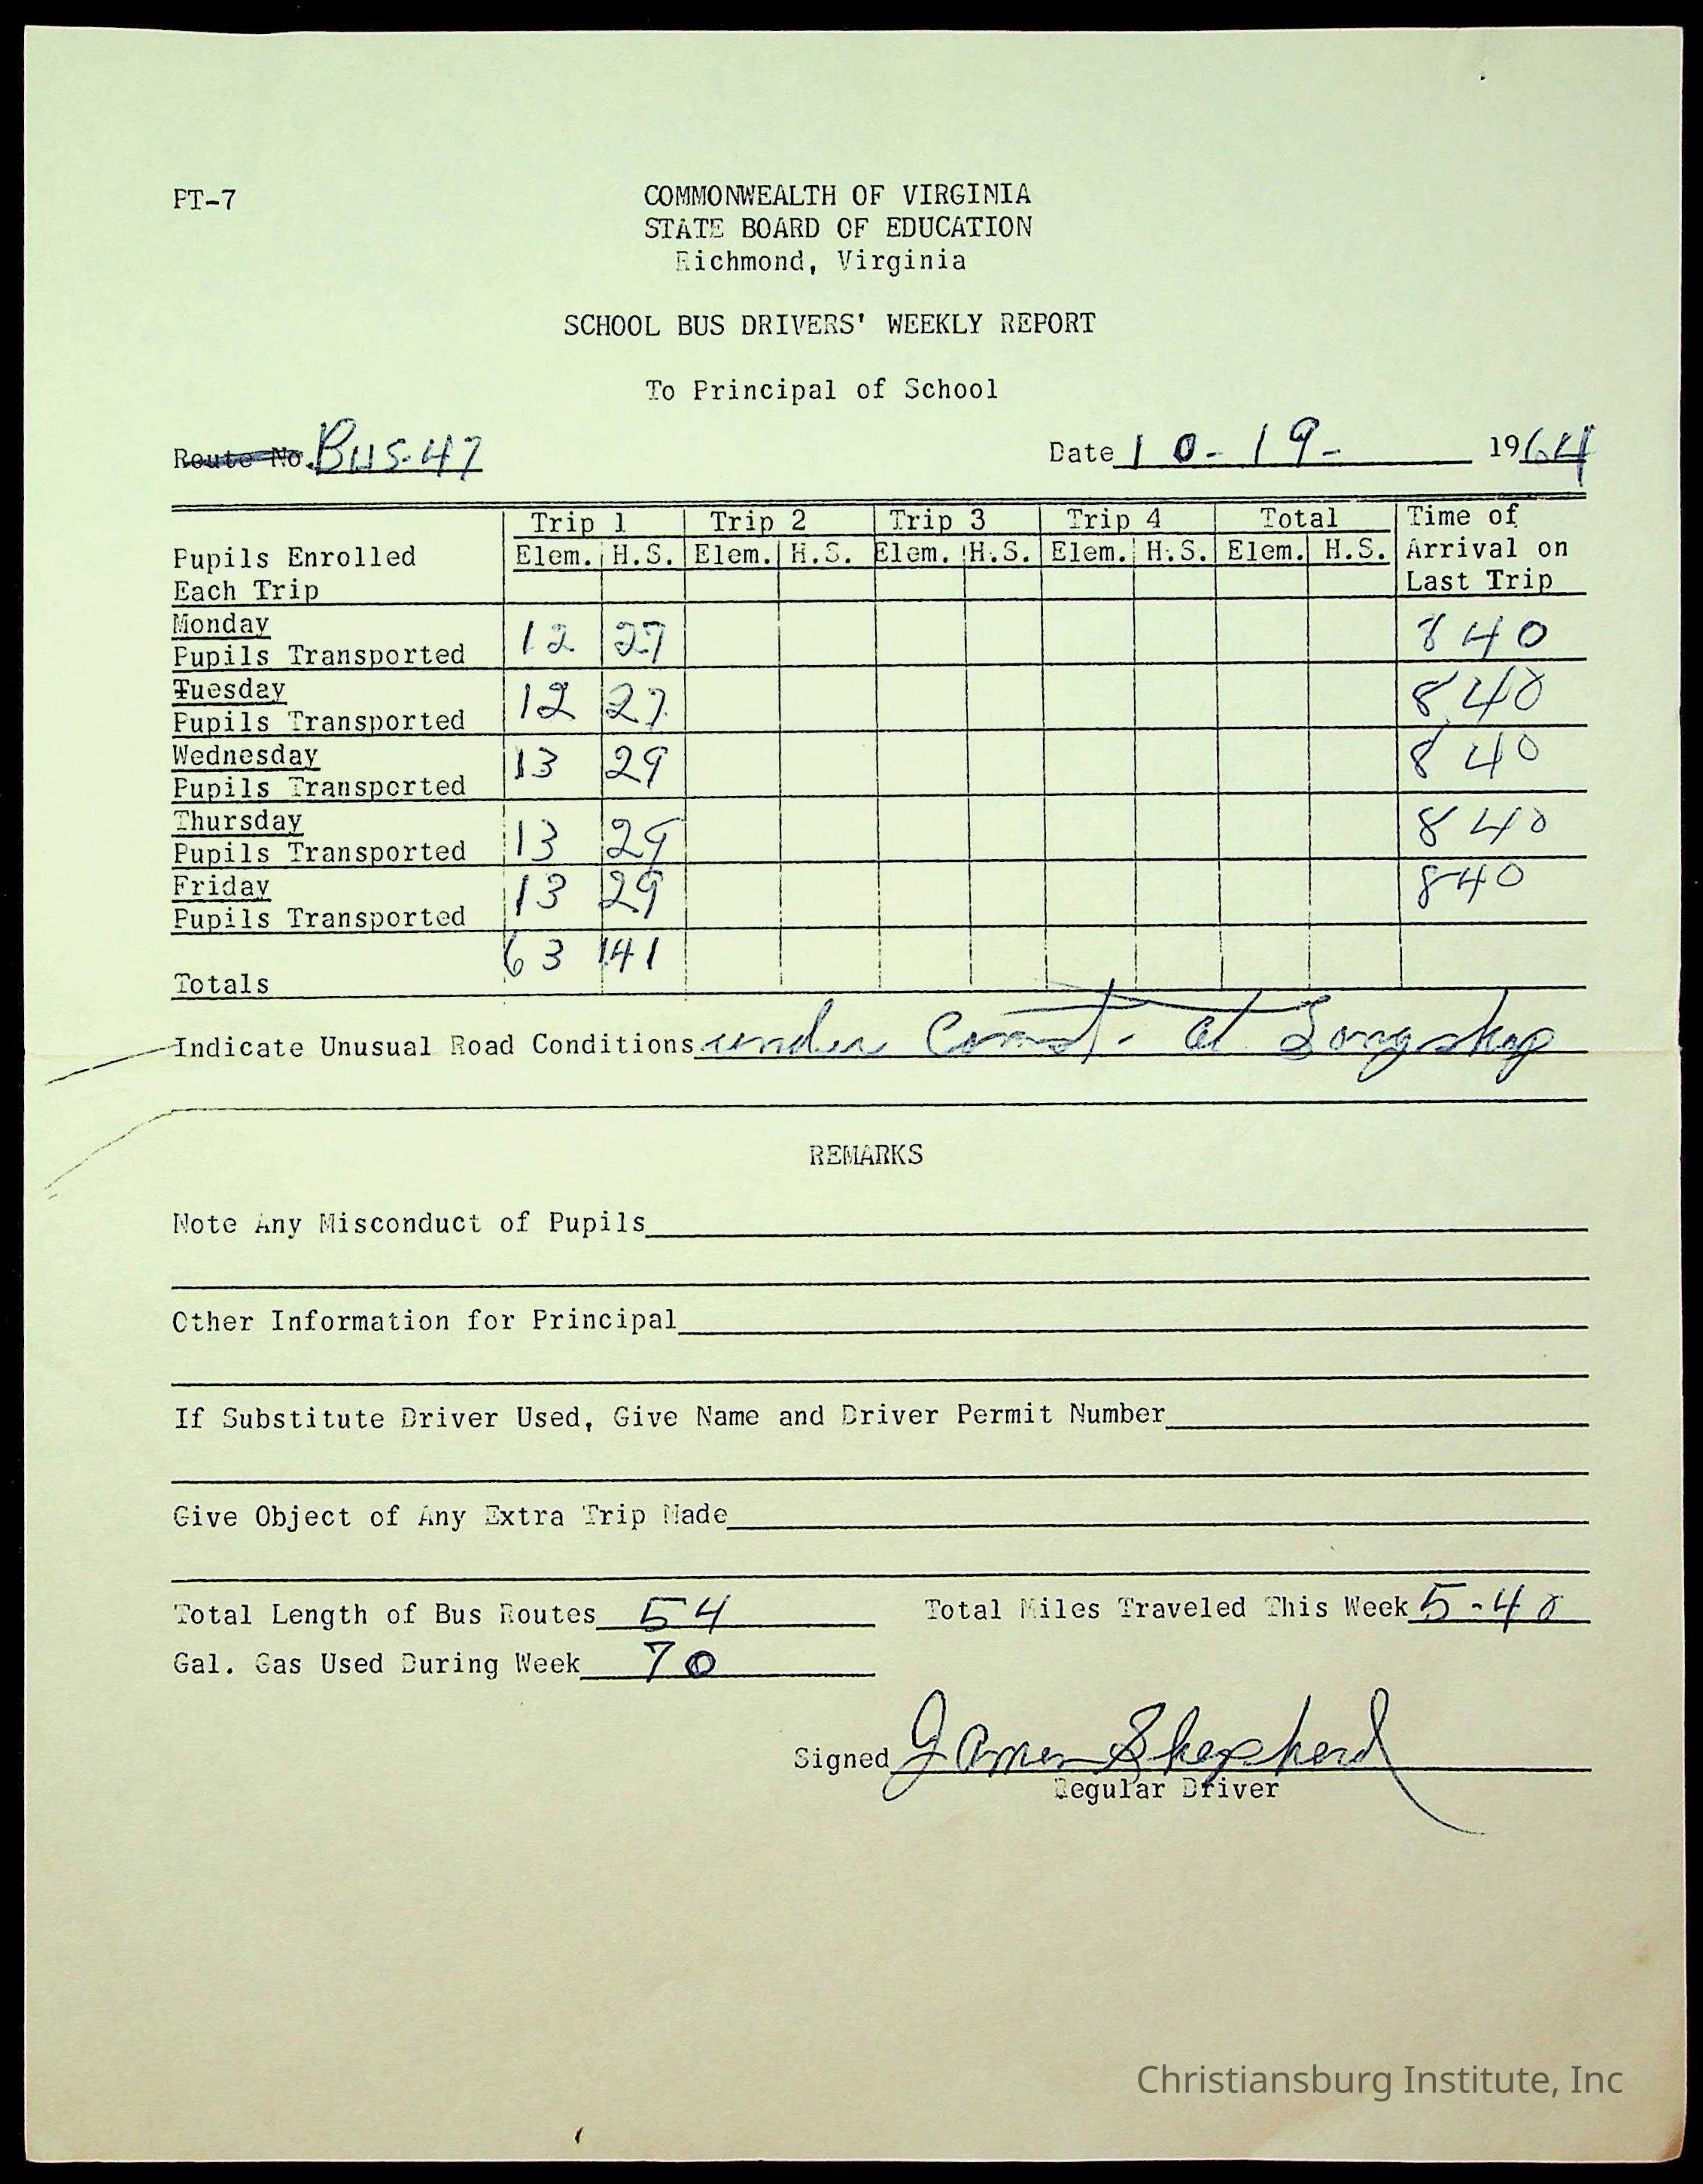 PT-7
COMMONWEALTH OF VIRGINIA
STATE BOARD OF EDUCATION
Richmond, Virginia
SCHOOL BUS DRIVERS' WEEKLY REPORT
To Principal of School
Route No. Bus-47 Date 10-19- 1964
Trip 1 Trip 2 Trip 3 Trip 4 Total Time of
Pupils Enrolled Elem. H.S. Elem. H.S. Elem. H.S. Elem. H.S. Elem. H.S. Arrival on
Each Trip Last Trip
Monday
Pupils Transported 12 27 840
Tuesday
Pupils Transported 12 27 840
Wednesday
Pupils Transported 13 29 840
Thursday
Pupils Transported 13 29 840
Friday
Pupils Transported 13 29 840
Totals 63 141
Indicate Unusual Road Conditions under Const. at Longshop
REMARKS
Note Any Misconduct of Pupils
Other Information for Principal
If Substitute Driver Used, Give Name and Driver Permit Number
Give Object of Any Extra Trip Made
Total Length of Bus Routes 54 Total Miles Traveled This Week 5-40
Gal. Gas Used During Week 70
Signed James Shepherd
Regular Driver
Christiansburg Institute, Inc